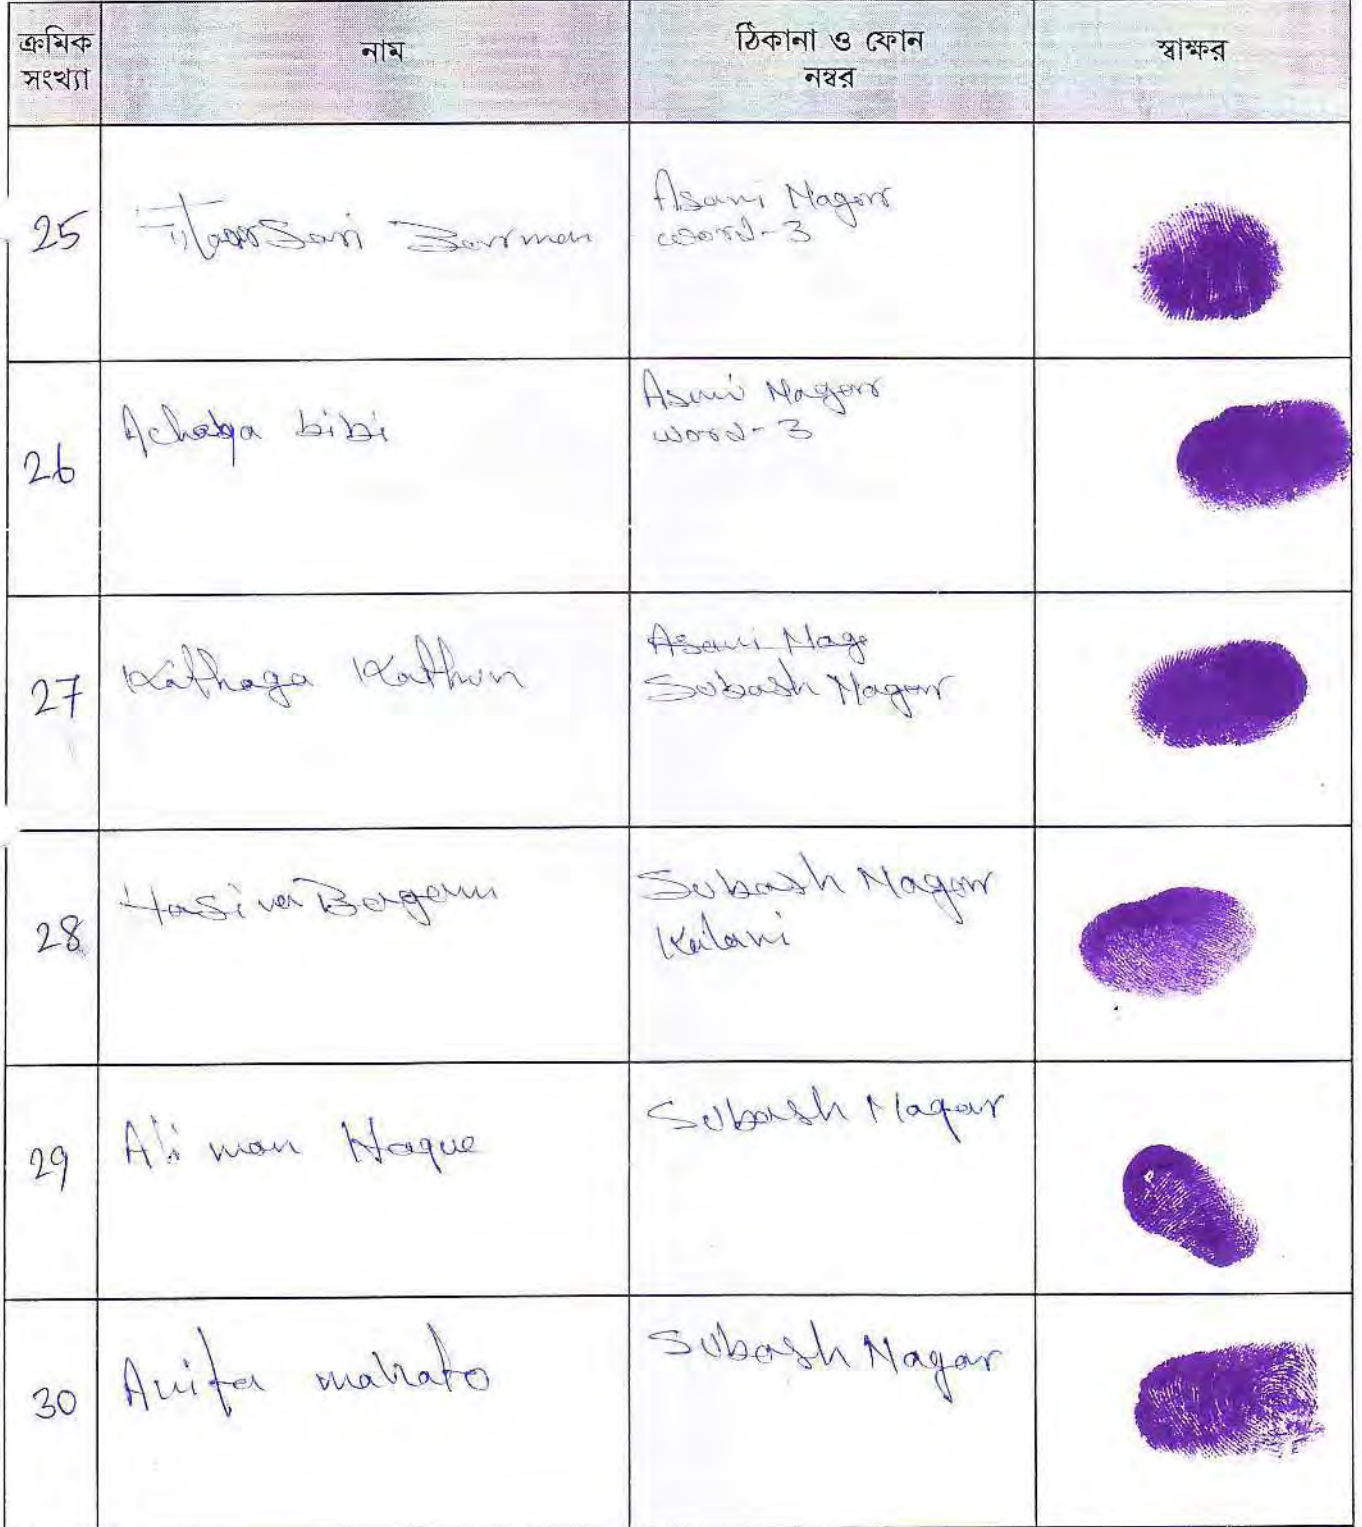 ক্রমিক সংখ্যা
নাম
ঠিকানা ও ফোন নম্বর
স্বাক্ষর
25
Barman
Asani Nagar
word-3
26
bibi
Asani Nagar
word-3
27
Kathun
Asani Nag
Subash Nagar
28
Hasina Begam
Subash Nagar
Kalani
29
Ali man Haque
Subash Nagar
30
Anita mahato
Subash Nagar